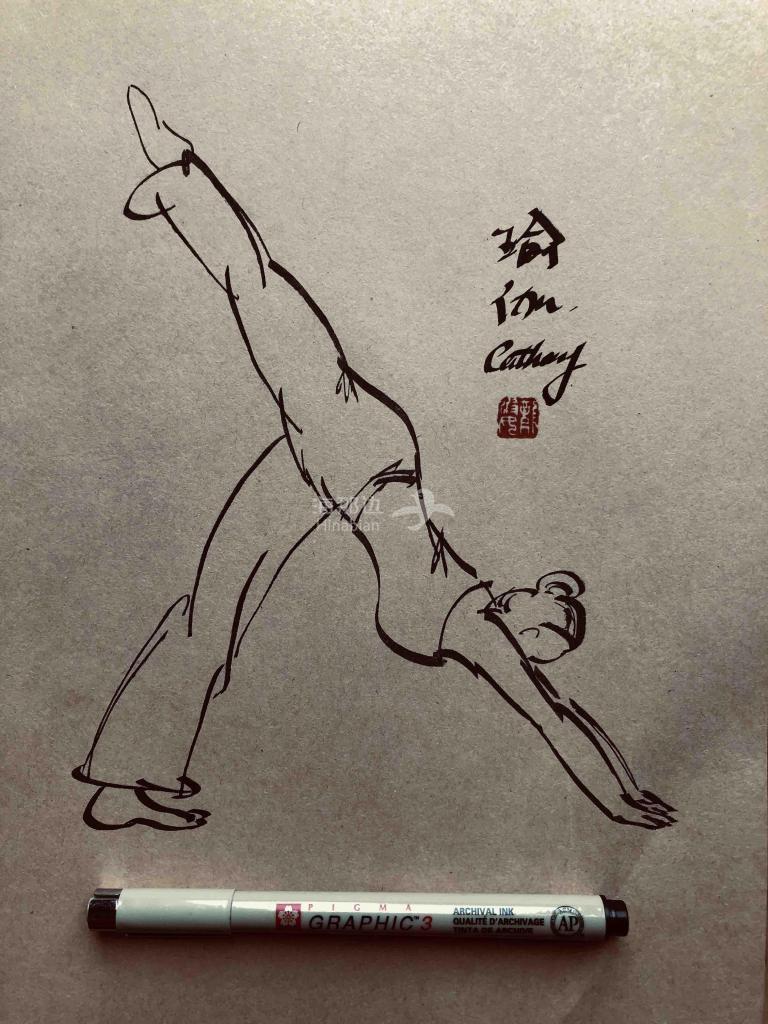 瑜
伽.
Cathay
海那边
Hinabian
PIGMA
GRAPHIC™3
ARCHIVAL INK
QUALITÉ D'ARCHIVAGE
TINTA DE ARCHIVE
AP